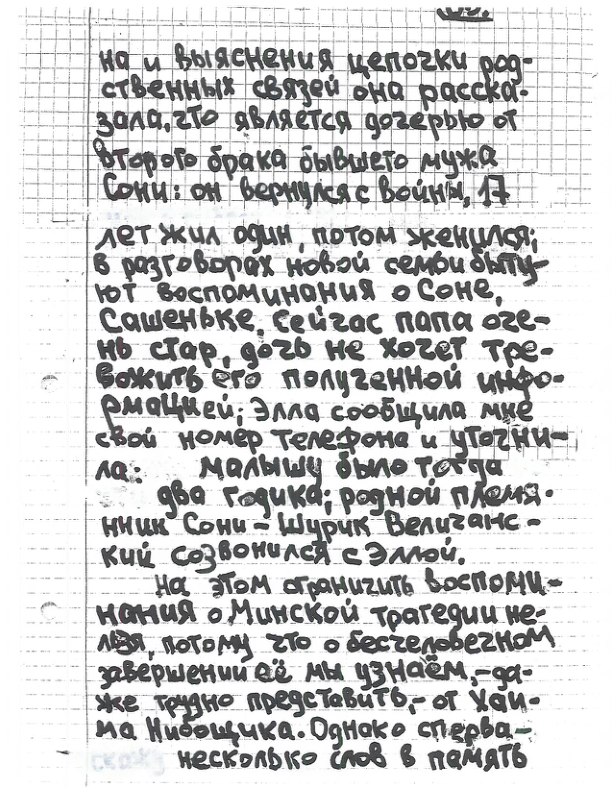 на и выяснения цепочки род-
ственных связей она расска-
зала, что является дочерью от
второго брака бывшего мужа
Сони: он вернулся с войны, 17
лет жил один, потом женился;
в разговорах новой семьи быту-
ют воспоминания о Соне,
Сашеньке, сейчас папа оче-
нь стар, дочь не хочет тре-
вожить его полученной инфо-
рмацией; Элла сообщила мне
свой номер телефона и уточни-
ла: малышу было тогда
два годика; родной племя-
нник Сони - Шурик Величанс-
кий созвонился с Эллой.
На этом ограничить воспоми-
нания о Минской трагедии не-
льзя, потому что о бесчеловечном
завершении её мы узнаём, - да-
же трудно представить, - от Хаи-
ма Нибощика. Однако сперва -
несколько слов в память